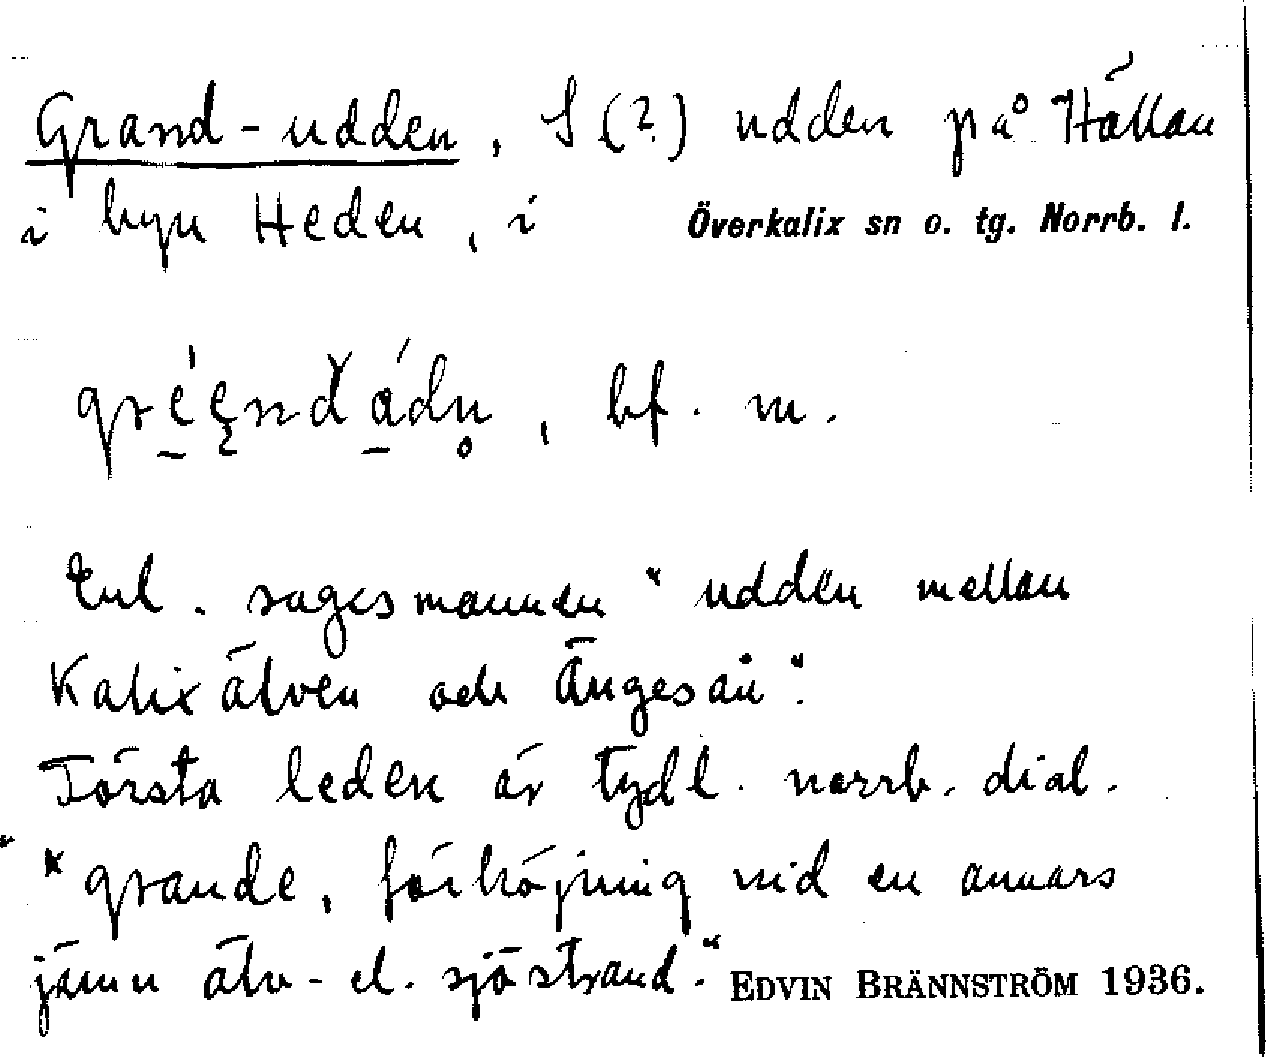 Grand-udden, S (?) udden på Hällan
i byn Heden, i Överkalix sn o. tg. Norrb. l.
, bf. m.
Enl. sagesmannen "udden mellan
Kalixälven och Ängesån".
Första leden är tydl. norrb. dial.
" *grande, förhöjning vid en annars
jämn älv- el. sjöstrand." EDVIN BRÄNNSTRÖM 1936.